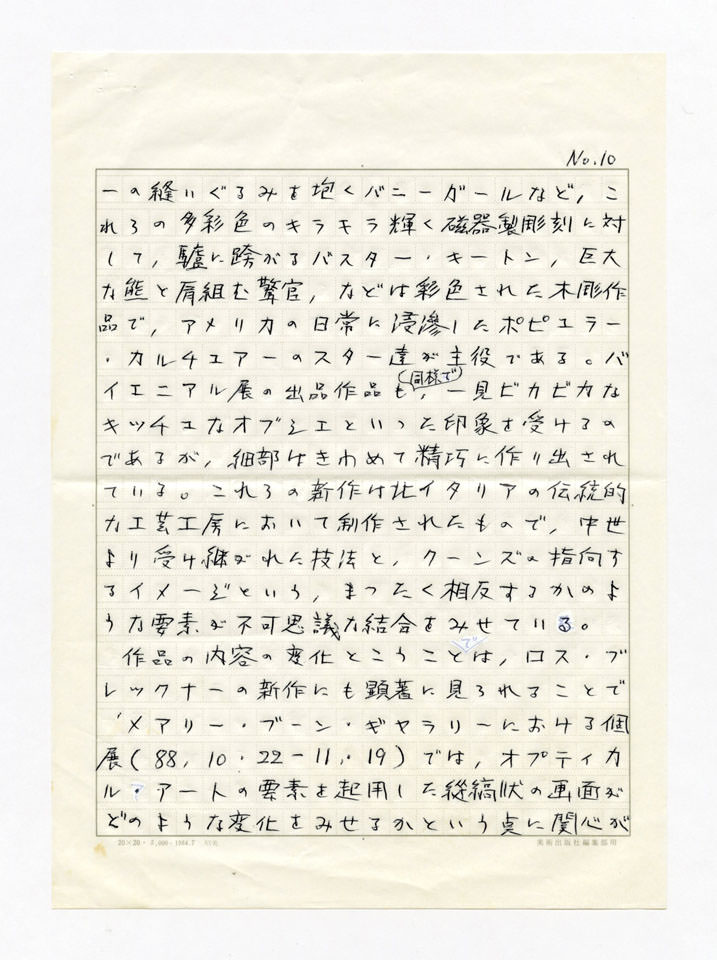 No.10
ーの縫いぐるみを抱くバニーガールなど，こ
れらの多彩色のキラキラ輝く磁器製彫刻に対
して，驢に跨がるバスター・キートン，巨大
な熊と肩組む警官，などは彩色された木彫作
品で，アメリカの日常に浸滲したポピュラー
・カルチュアーのスター達が主役である。バ
イエニアル展の出品作品も(同様で)，一見ピカピカな
キッチュなオブジェといった印象を受けるの
であるが，細部はきわめて精巧に作り出され
ている。これらの新作は北イタリアの伝統的
な工芸工房において制作されたもので，中世
より受け継がれた技法と，クーンズの指向す
るイメージという，まったく相反するかのよ
うな要素が不可思議な結合をみせている。
作品の内容の変化とこうことでは，ロス・ブ
レックナーの新作にも顕著に見られることで
メアリー・ブーン・ギャラリーにおける個
展(88，10・22－11，・19)では，オプティカ
ル・アートの要素を起用した縦縞状の画面が
どのような変化をみせるかという点に関心が
20×20・
1984.7
美術出版社編集部用